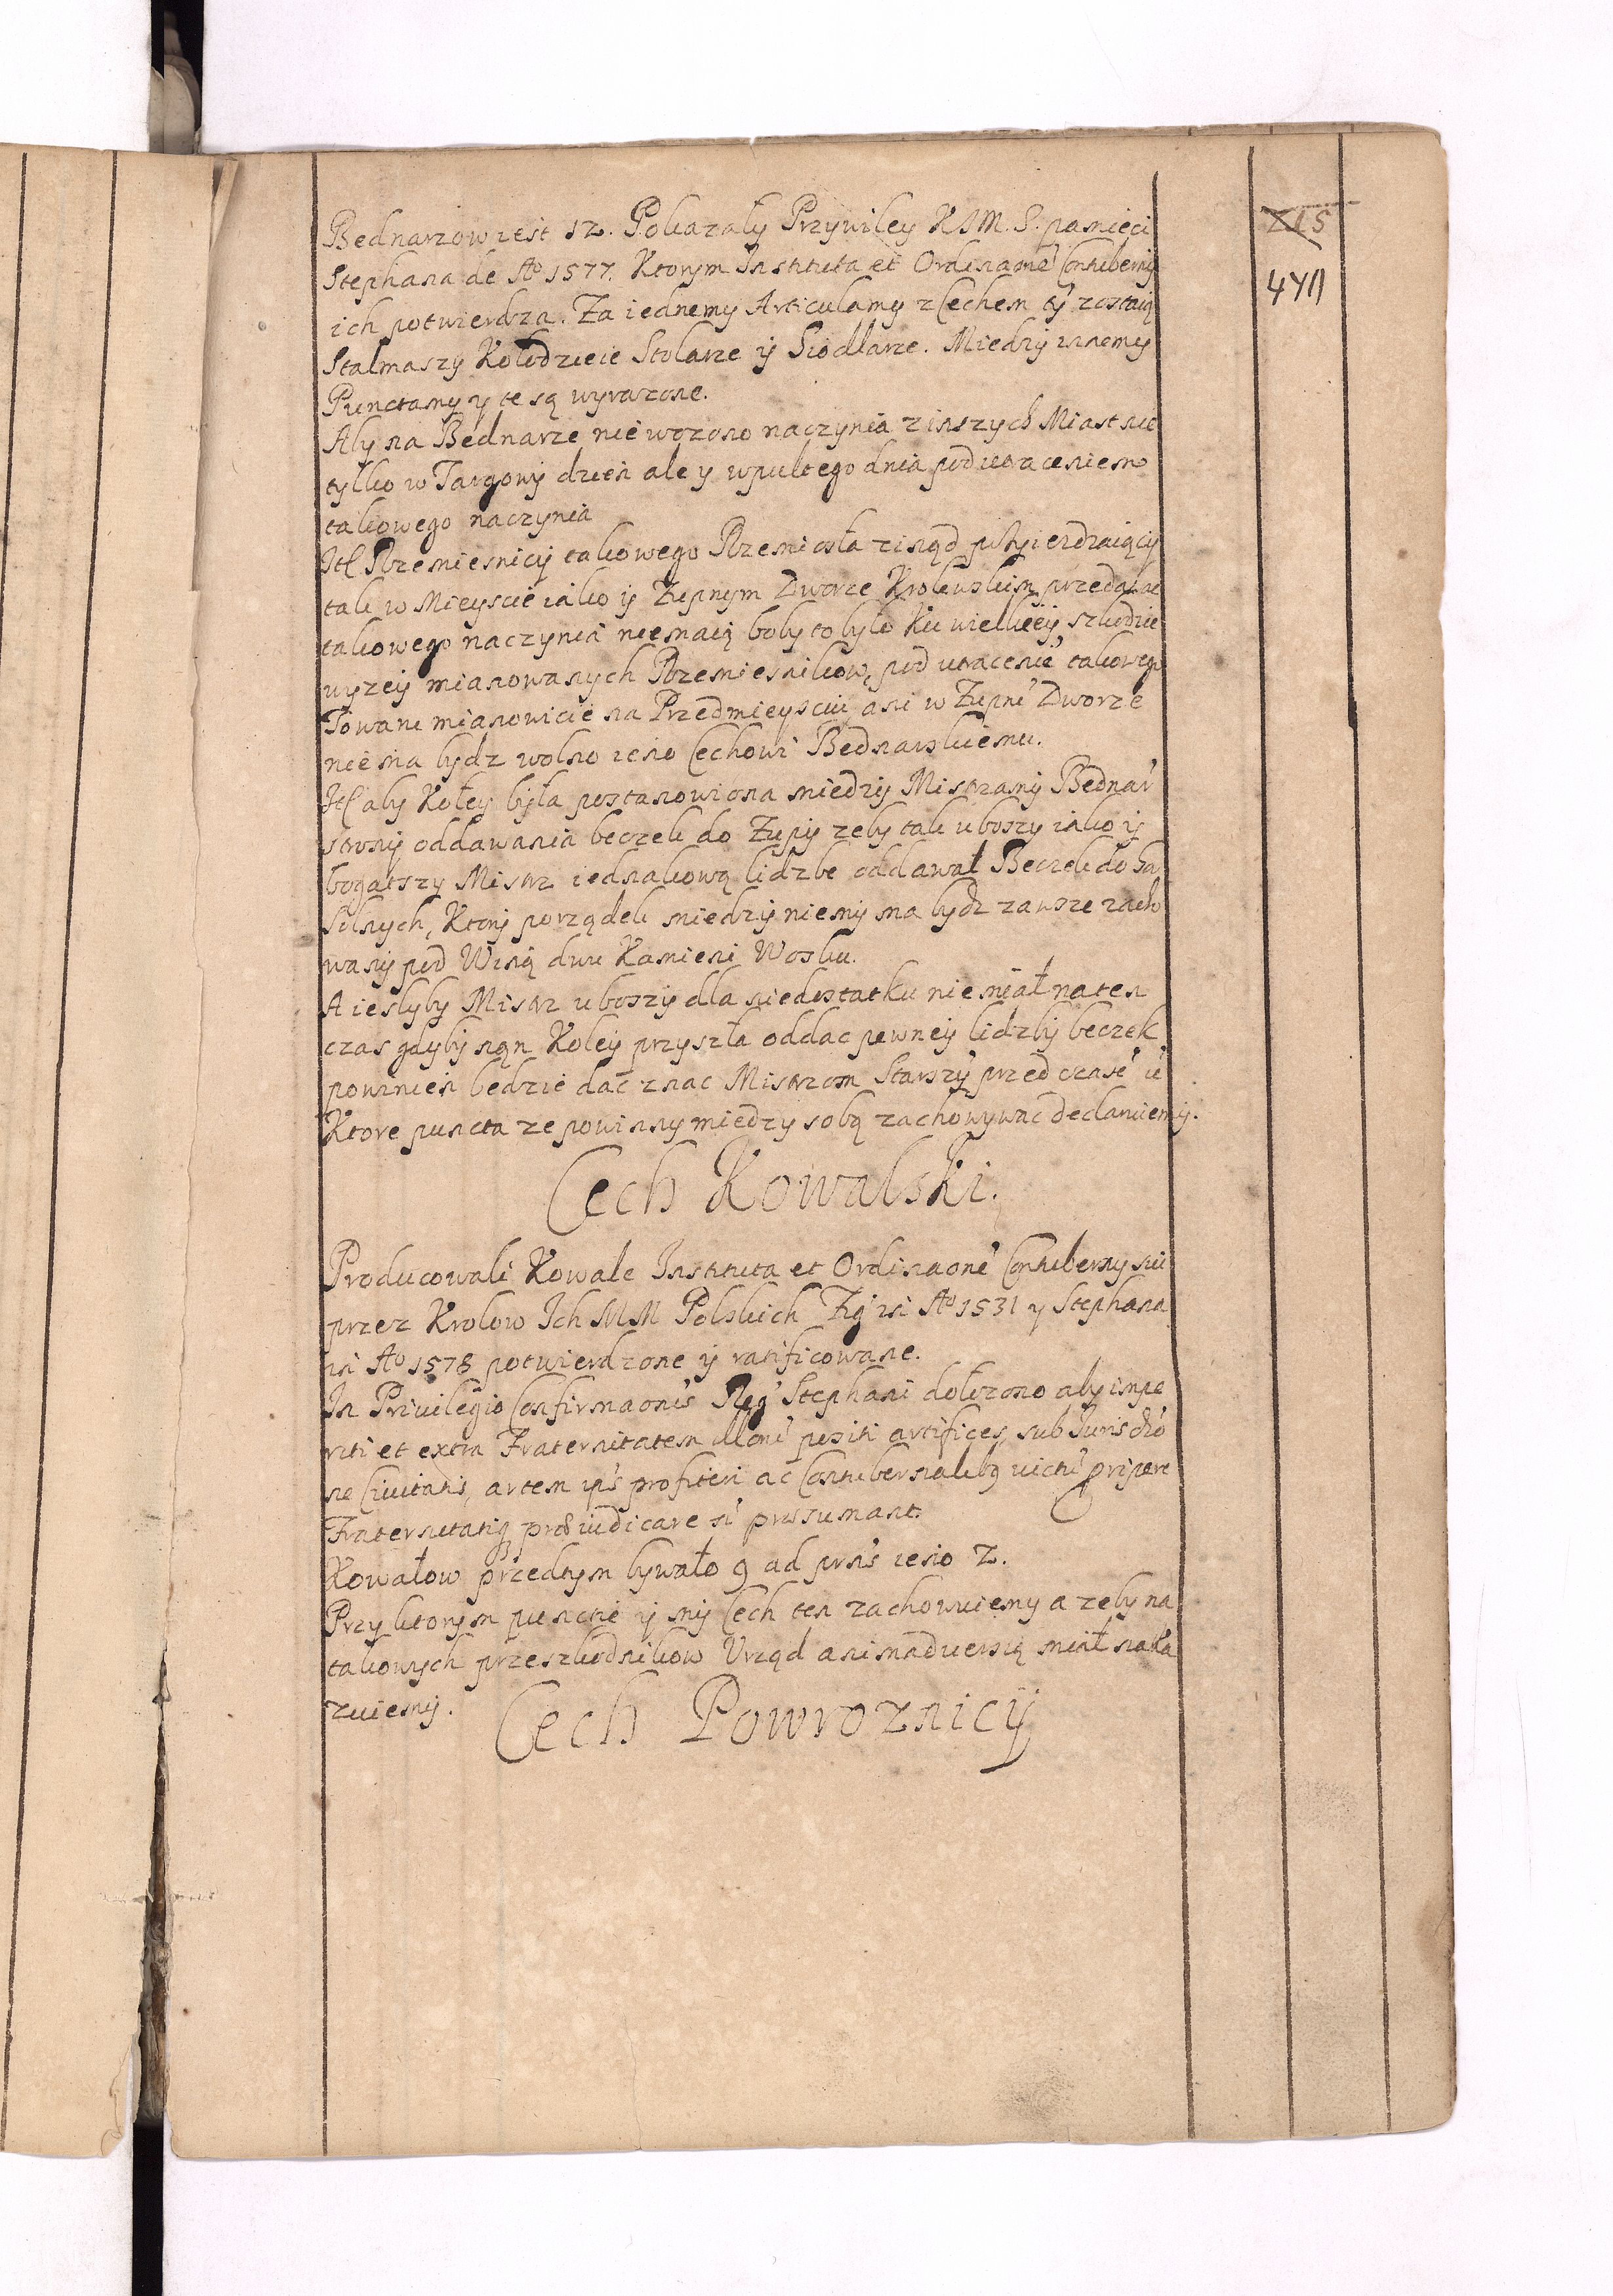 Bednarzow iest 12. Pokazaly Przywiley KJM. S. pamięci
215
Stephana de Ao 1577. Ktorym Instituta et Ordinaone Contuberny
471
ich potwierdza. Za iednemy Articulamy z Cechem ty zostaią
Stalmaszy Kołodzieie Stolarze ij Siodlarze. Miedzy innemy
Punctamy y te są wyrazone.
Aby na Bednarze nie wozono naczynia z inszych Miast nie
tylko w Targowy dzien ale y w pultego dnia pod utraceniem
takowego naczynia
Rzemiesnicy takowego Rzemiosła zinąd
tak w Mieyscie iako ij Zupnym Dworze Krolewskim przedawac
takowego naczynia niemaią boby to było Ku wielkieij szkodzie
wyzeij mianowanych Rzemiesnikow, pod utracenie takowego
Towaru mianowicie na Przedmieysciu ani w Zupne Dworze
niema bydz wolno ieno Cechowi Bednarskiemu.
aby Koley była postanowiona miedzij Mistrzamij Bednar
skiemij oddawania beczek do Zupy zeby tak uboszy iako ij
bogatszy Mistrz iednakową lidzbe oddawał Beczek do Ba
Solnych, Ktorij porządek miedzij niemij ma bydz zawsze zacho
wanij pod Winą dwu Kamieni Wosku.
A iesliby Mistrz uboszij dla niedostatku nie miał na ten
czas gdyby nan Koleij przyszła oddac pewneij lidzbij beczek
powinien bedzie dac znac Mistrzom Starszy przed czase
Ktore puncta ze powinny miedzy sobą zachowywac declaruiemij.
Cech Kowalski.
Producowali Kowale Instituta et Ordinaone Contuberny sui
przez Krolow Ich MM Polskich Zig in Ao 1531 y Stephana
in Ao 1578 potwierdzone ij ratificowane.
In Privilegio Confirmaonis Reg Stephani dołozono aby impe
riti et extra Fraternitatem positi artifices, sub Jurisdio
ne Civitatis, artem ips profiteri ac Contubernalibq victu pripere
Fraternitatiq preiudicare n presumant.
Kowalow przedtym bywało 9 ad prns ieno 2.
Przy ktorym puncie ij mij Cech ten zachowuiemy a zeby na
takowych przeszkodnikow Urząd animadversią miał naka
zuiemij.
Cech Powroznicij